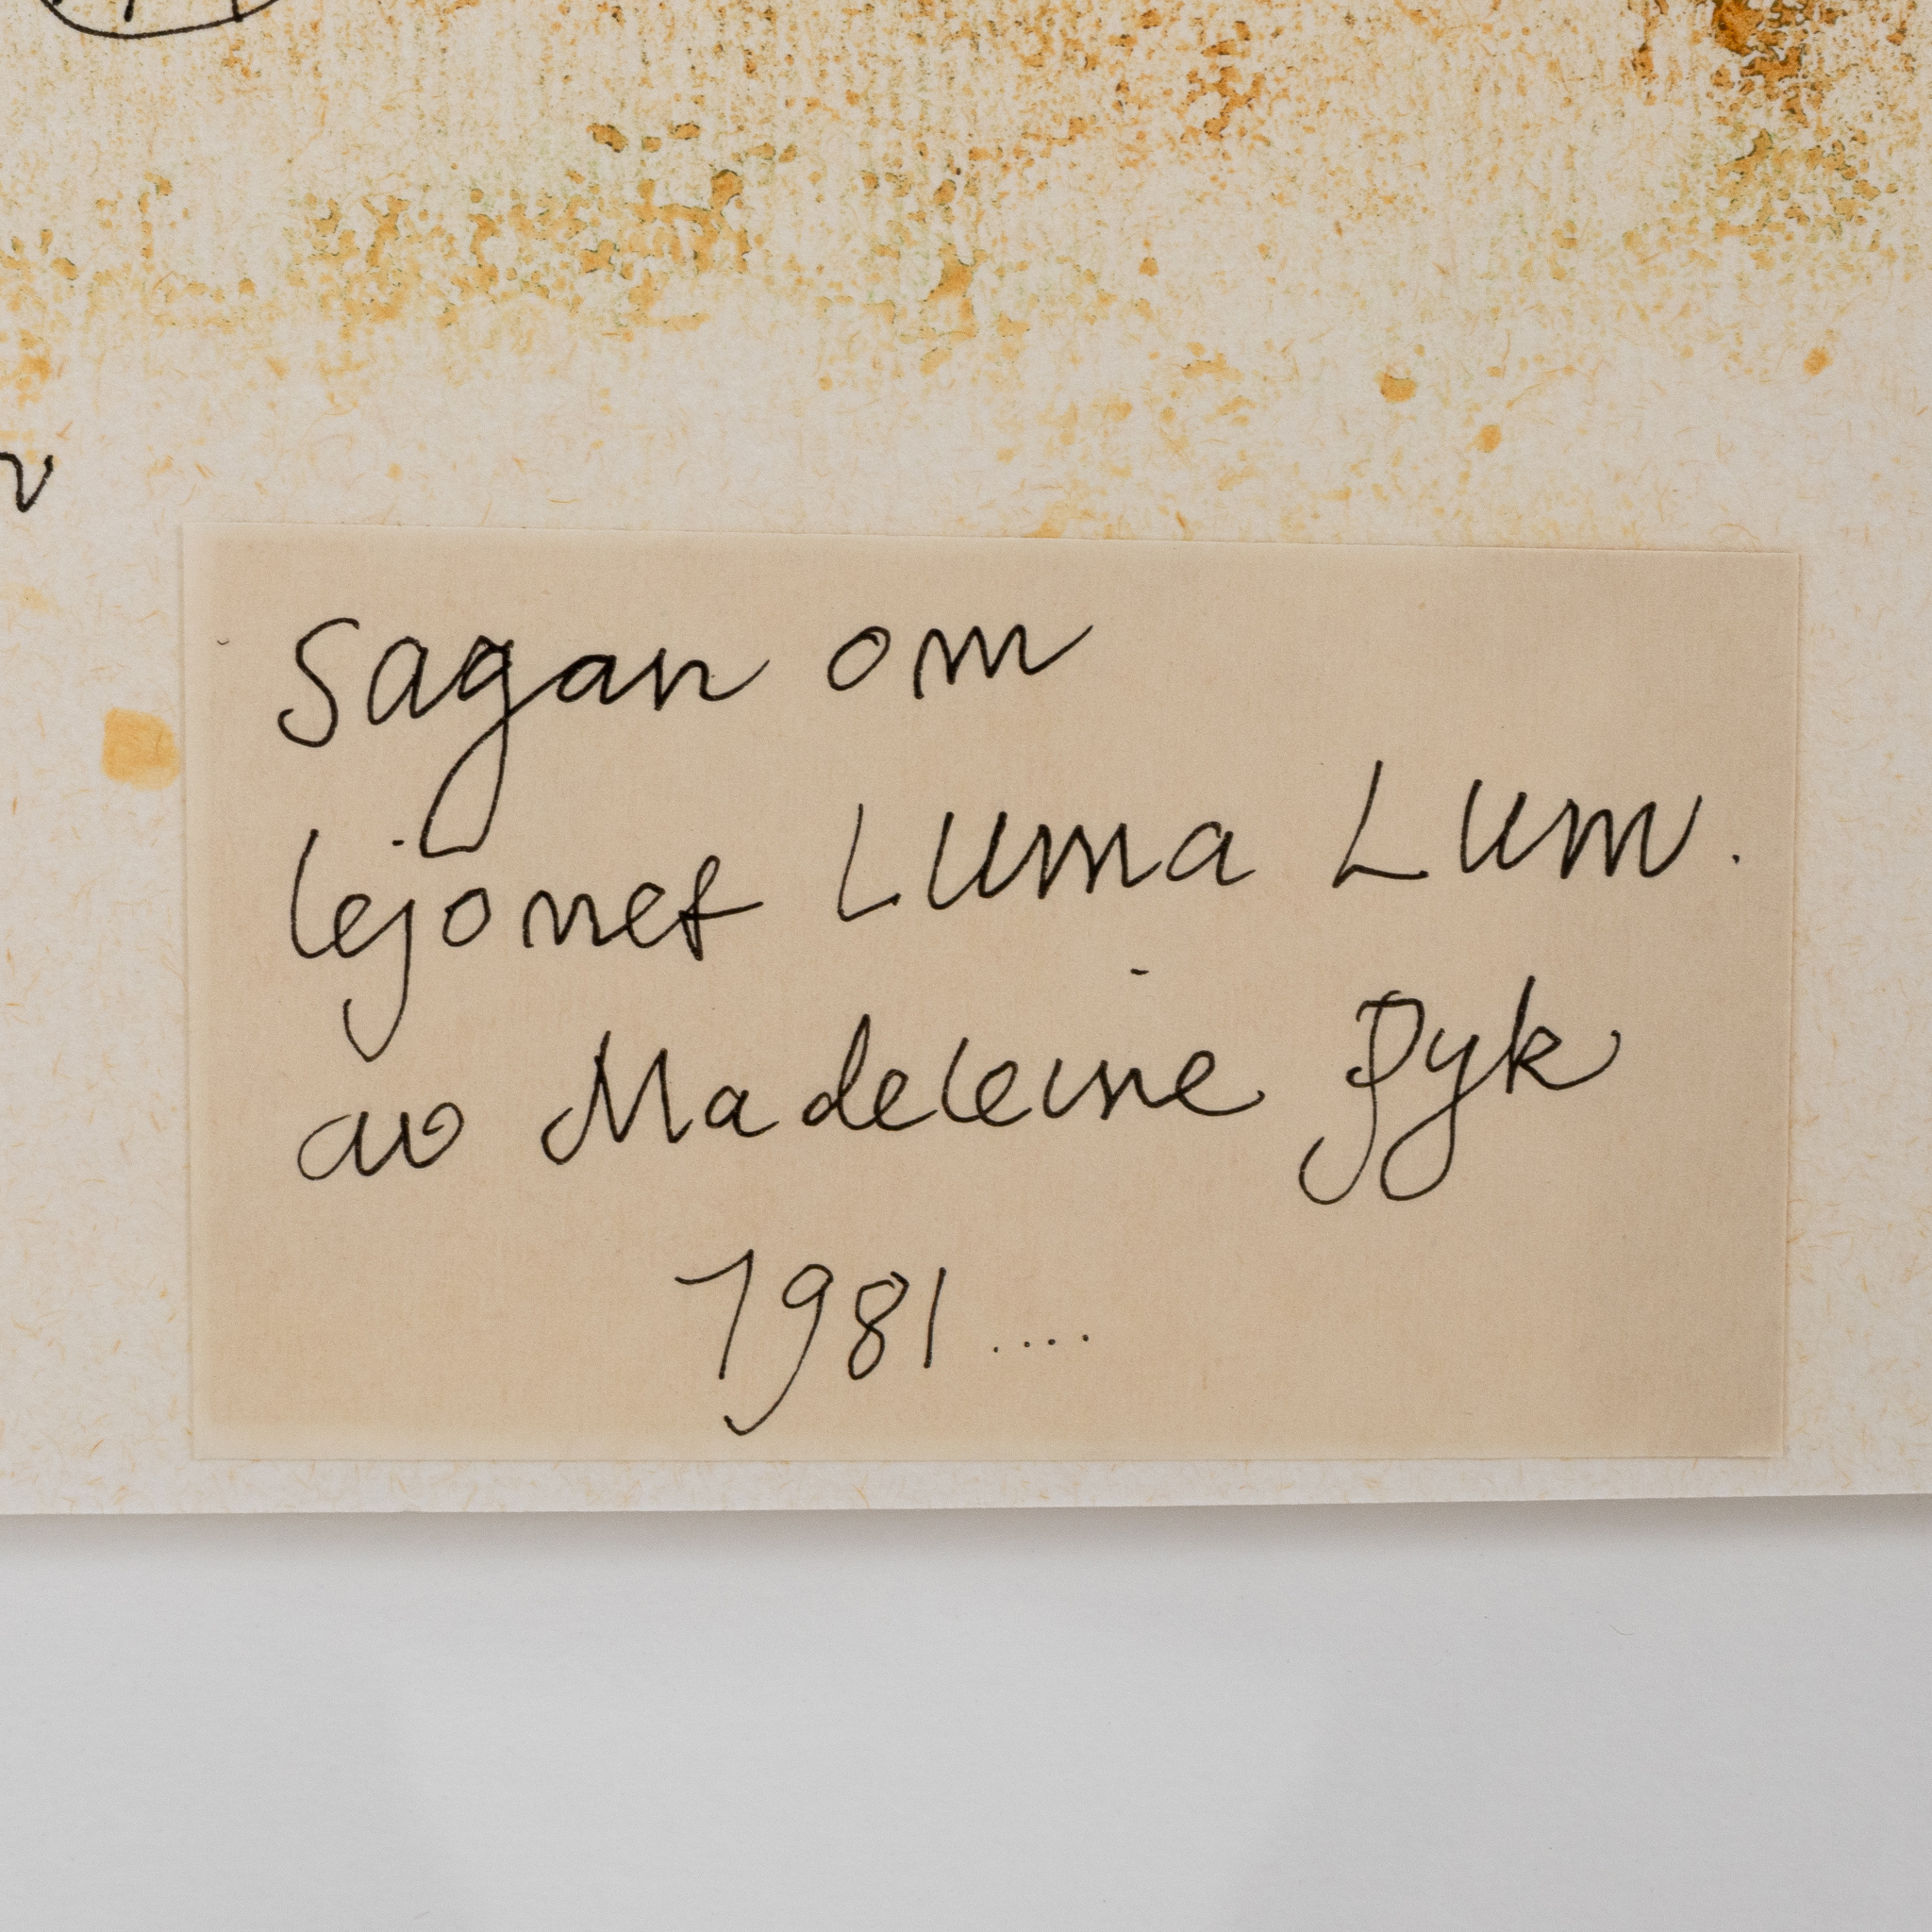 Sagan om
lejonet Luma Lum.
av Madeleine Pyk
1981....